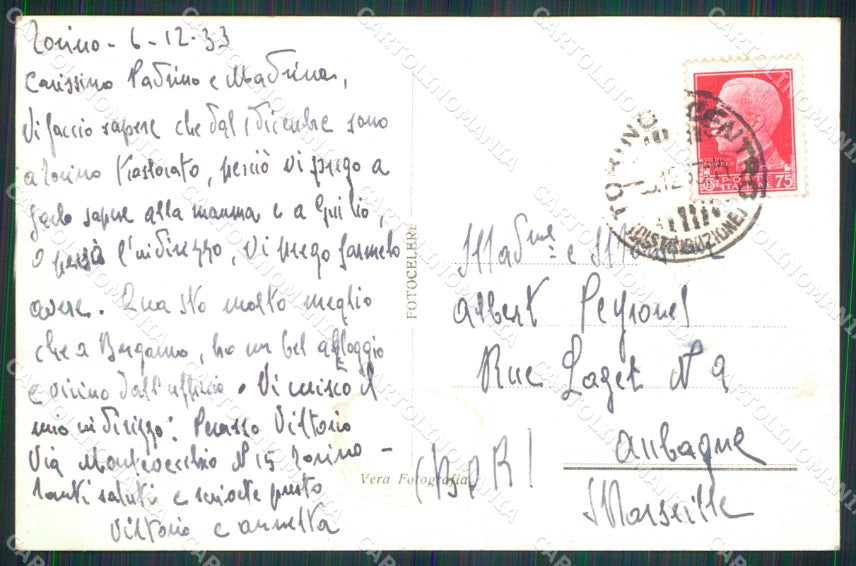 Torino - 6-12-33
Carissimo Padrino e Madrina,
Vi faccio sapere che dal 1 dicembre sono
a Torino traslocato, perciò vi prego a
farlo sapere alla mamma e a Guilio,
o persà l'indirizzo, vi prego farmelo
avere. Qua sto molto meglio
che a Bergamo, ho un bel alloggio
e vicino dall'ufficio. Vi unisco il
mio indirizzo: Perasso Vittorio
Via Montevecchio N 15 Torino -
Tanti saluti e scriocte presto
Vittorio e annetta
FOTOCELERE
Vera Fotografia
TORINO CENTRO
(DISTRIBUZIONE)
POSTE
ITALIANE
75
Madme e M
Albert Peyronel
Rue Laget N 9
Aubagne
(BPR)
Marseille
CARTOLINOMANIA